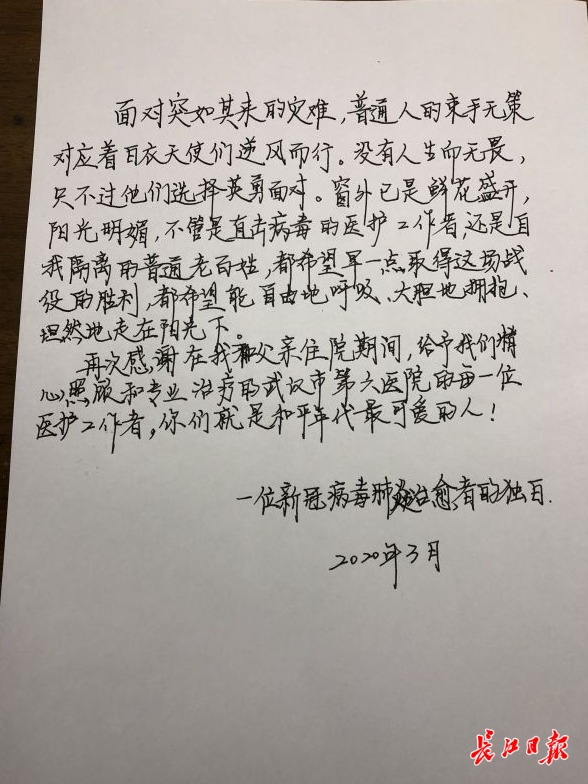 面对突如其来的灾难，普通人的束手无策
对应着白衣天使们逆风而行。没有人生而无畏，
只不过他们选择英勇面对。窗外已是鲜花盛开，
阳光明媚，不管是直击病毒的医护工作者，还是自
我隔离的普通老百姓，都希望早一点取得这场战
役的胜利，都希望能自由地呼吸、大胆地拥抱、
坦然地走在阳光下。
再次感谢在我和父亲住院期间，给予我们精
心照顾和专业治疗的武汉市第六医院的每一位
医护工作者，你们就是和平年代最可爱的人！
一位新冠病毒肺炎治愈者的独白.
2020年3月
长江日报